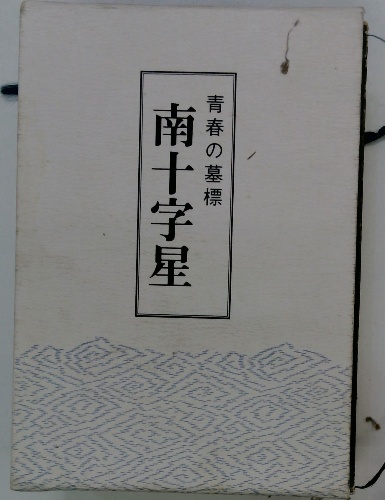 青春の墓標
南十字星